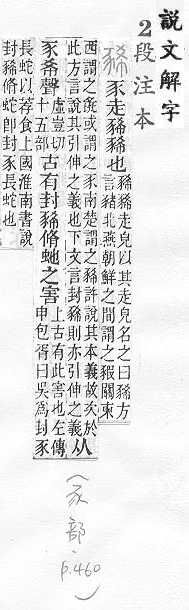 說文解字
2段注本
豨
豕走豨豨也
豨豨走皃以其走皃名之曰豨方
言豬北燕朝鮮之間謂之豭關東
西謂之彘或謂之豕南楚謂之豨許說其本義故次於
此方言說其引伸之義也下文言封豨則亦引伸之義也
从
豕希聲
虛豈切
十五部
古有封豨脩虵之害
上古有此害也左傳
申包胥曰吳爲封豕
長蛇以荐食上國淮南書說
封豨脩蛇卽封豕長蛇也
(豕部, p.460)